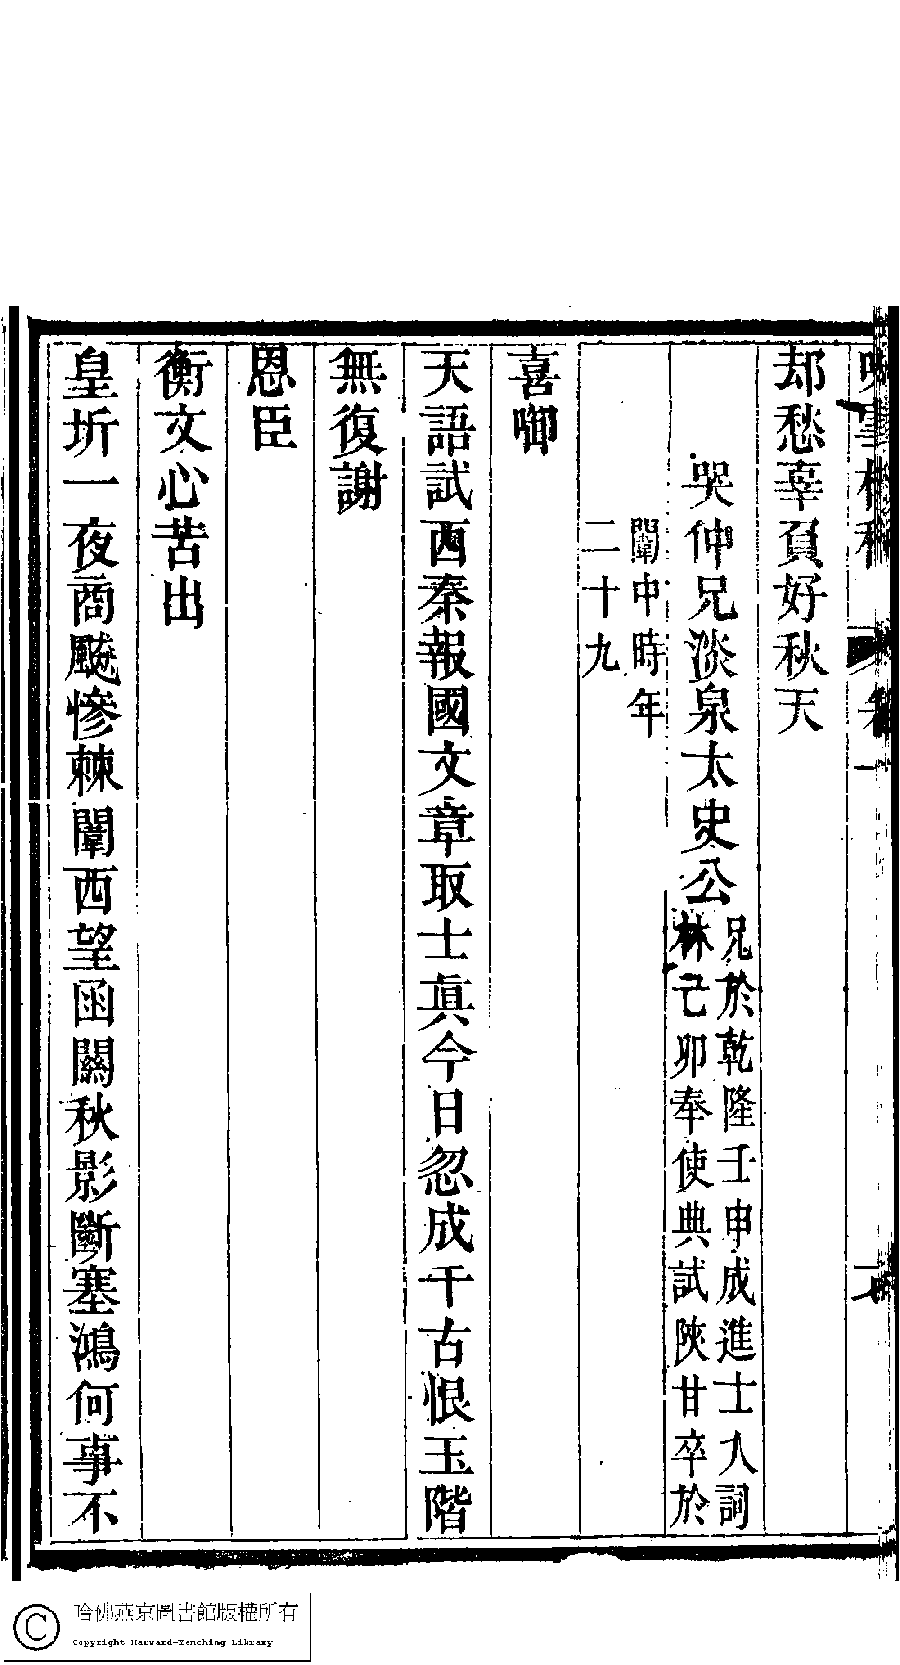 咏雪樓稿 卷一 七
却愁辜負好秋天
哭仲兄淡泉太史公
兄於乾隆壬申成進士入詞
林己卯奉使典試陝甘卒於
闈中時年
二十九
喜啣
天語試西秦報國文章取士眞今日忽成千古恨玉階
無復謝
恩臣
衡文心苦出
皇圻一夜商飈慘棘闈西望函關秋影斷塞鴻何事不
哈佛燕京圖書館版權所有
Copyright Harvard-Yenching Library